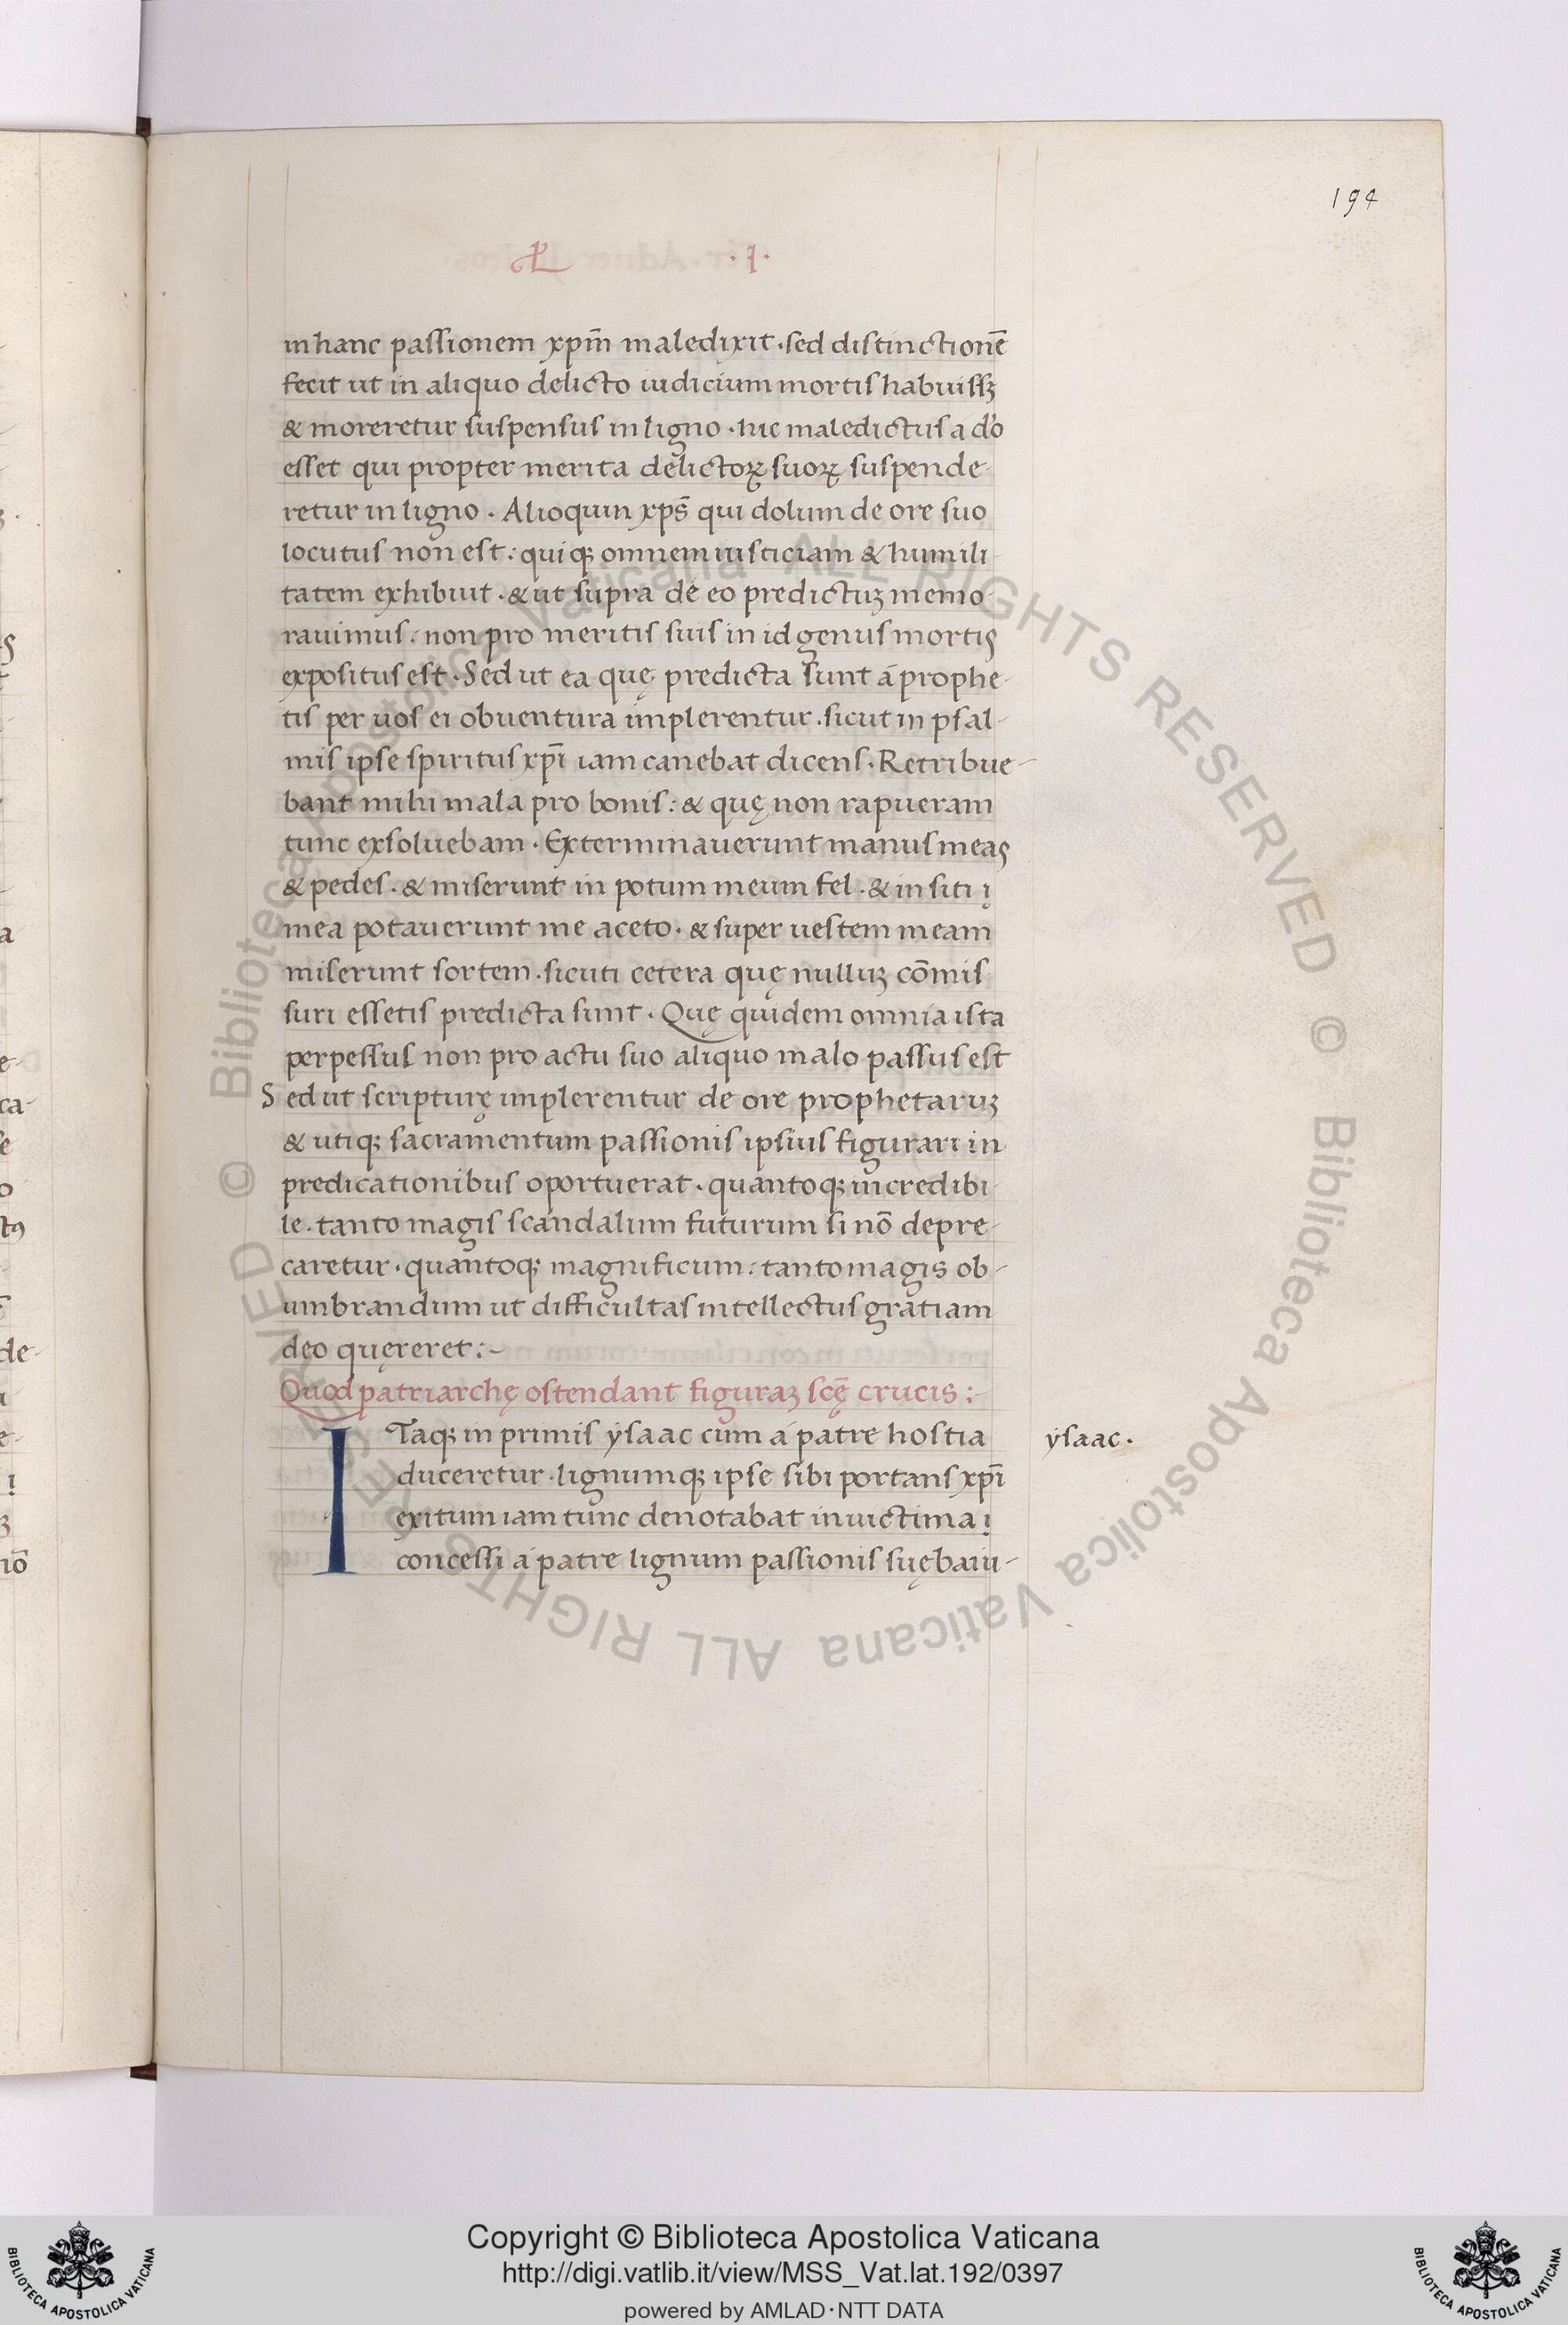 194
.I.
in hanc passionem xp̄m maledixit · sed distinctionē
fecit ut in aliquo delicto iudicium mortis habuissꝫ
& moreretur suspensus in ligno · hic maledictus a do̅
esset qui propter merita delictoꝝ suoꝝ suspende-
retur in ligno · Alioquin xp̄s qui dolum de ore suo
locutus non est : quiqꝫ omnem iusticiam & humili-
tatem exhibuit · & ut supra de eo predictuꝫ memo-
rauimus : non pro meritis suis in id genus mortis
expositus est · Sed ut ea quę predicta sunt á prophe-
tis per uos ei obuentura implerentur · sicut in psal-
mis ipse spiritus xp̄i iam canebat dicens · Retribue-
bant mihi mala pro bonis : & quę non rapueram
tunc exsoluebam · Exterminauerunt manus meas
& pedes · & miserunt in potum meum fel · & in siti
mea potauerunt me aceto · & super uestem meam
miserunt sortem · sicuti cetera quę nulluꝫ cōmis-
suri essetis predicta sunt · Quę quidem omnia ista
perpessus non pro actu suo aliquo malo passus est
Sed ut scripturę implerentur de ore prophetaruꝫ
& utiqꝫ sacramentum passionis ipsius figurari in
predicationibus oportuerat · quantoqꝫ incredibi-
le · tanto magis scandalum futurum si nō depre-
caretur · quantoqꝫ magnificum : tanto magis ob-
umbrandum ut difficultas intellectus gratiam
deo quęreret :-
Quod patriarchę ostendant figuraꝫ scę̄ crucis :-
ITaqꝫ in primis ẏsaac cum á patre hostia
duceretur · lignumqꝫ ipse sibi portans xp̄i
exitum iam tunc denotabat in uictima
concessi á patre lignum passionis suę baiu-
ẏsaac ·
Copyright © Biblioteca Apostolica Vaticana
http://digi.vatlib.it/view/MSS_Vat.lat.192/0397
powered by AMLAD·NTT DATA
BIBLIOTECA APOSTOLICA VATICANA
BIBLIOTECA APOSTOLICA VATICANA
© Biblioteca Apostolica Vaticana ALL RIGHTS RESERVED © Biblioteca Apostolica Vaticana ALL RIGHTS RESERVED